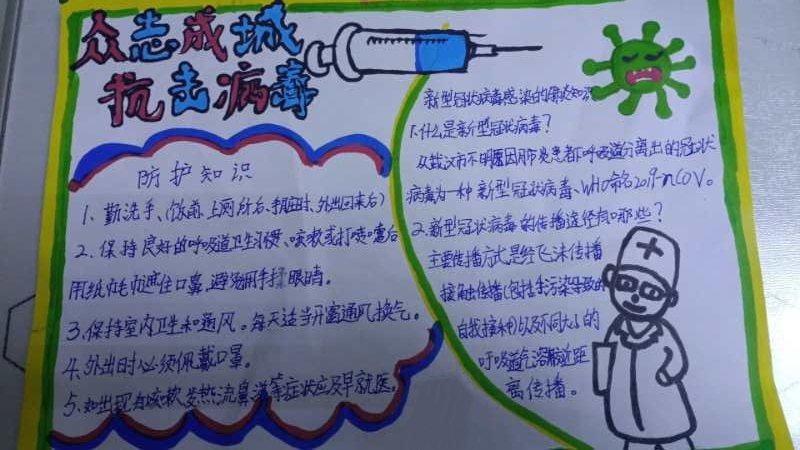 众志成城
抗击病毒
防护知识
1、勤洗手、(饭前、上厕所后、手脏时、外出回来后)
2、保持良好的呼吸道卫生习惯、咳嗽或打喷嚏后
用纸巾毛巾遮住口鼻、避免用手揉眼睛。
3、保持室内卫生和通风。每天适当开窗通风换气。
4、外出时必须佩戴口罩。
5、如出现有咳嗽、发热流鼻涕等症状应及早就医。
新型冠状病毒感染的知识
1.什么是新型冠状病毒?
从武汉市不明原因肺炎患者下呼吸道分离出的冠状
病毒为一种新型冠状病毒、WHO命名2019-nCOV。
2.新型冠状病毒的传播途径有哪些?
主要传播方式是经飞沫传播
接触传播(包括手污染导致的
自我接种)以及不同大小的
呼吸道气溶胶近距
离传播。